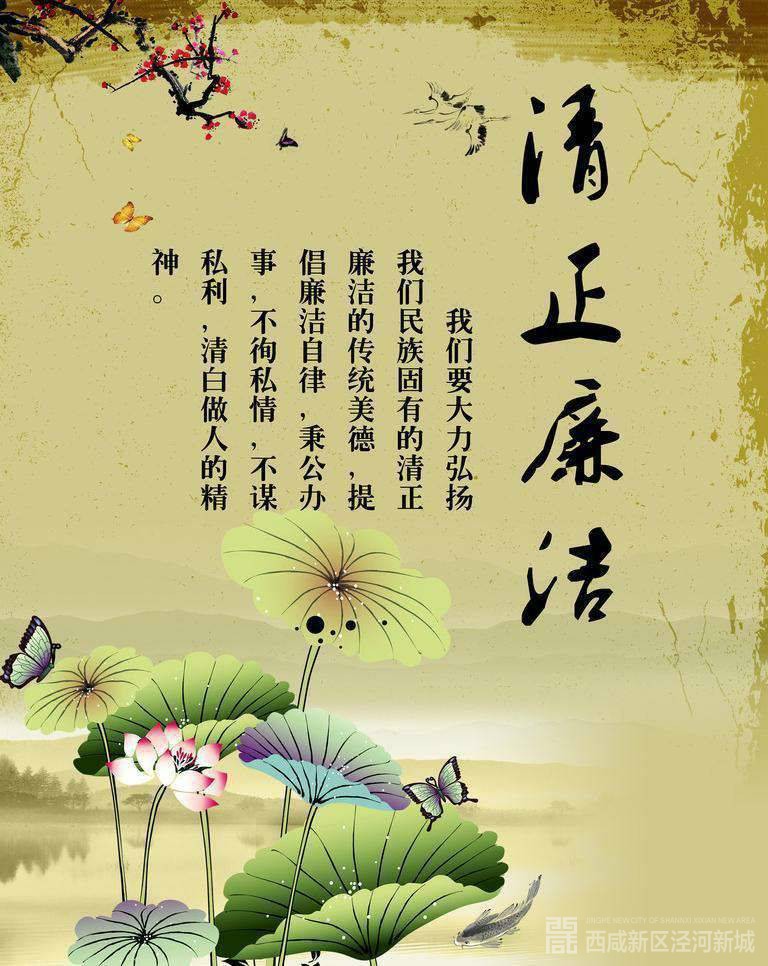 清正廉洁
我们要大力弘扬
我们民族固有的清正
廉洁的传统美德,提
倡廉洁自律,秉公办
事,不徇私情,不谋
私利,清白做人的精
神。
JINGHE NEW CITY OF SHAANXI XIXIAN NEW AREA
西咸新区泾河新城